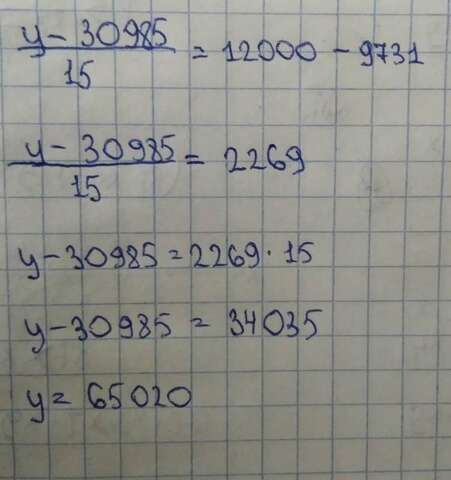 y - 30985 / 15 = 12000 - 9731
y - 30985 / 15 = 2269
y - 30985 = 2269 · 15
y - 30985 = 34035
y = 65020